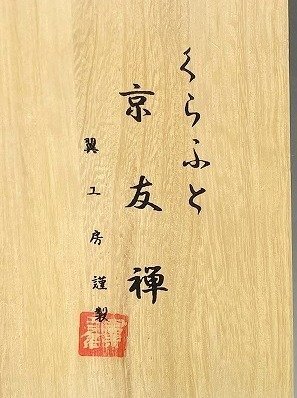 くらふと
京友禅
翼工房謹製